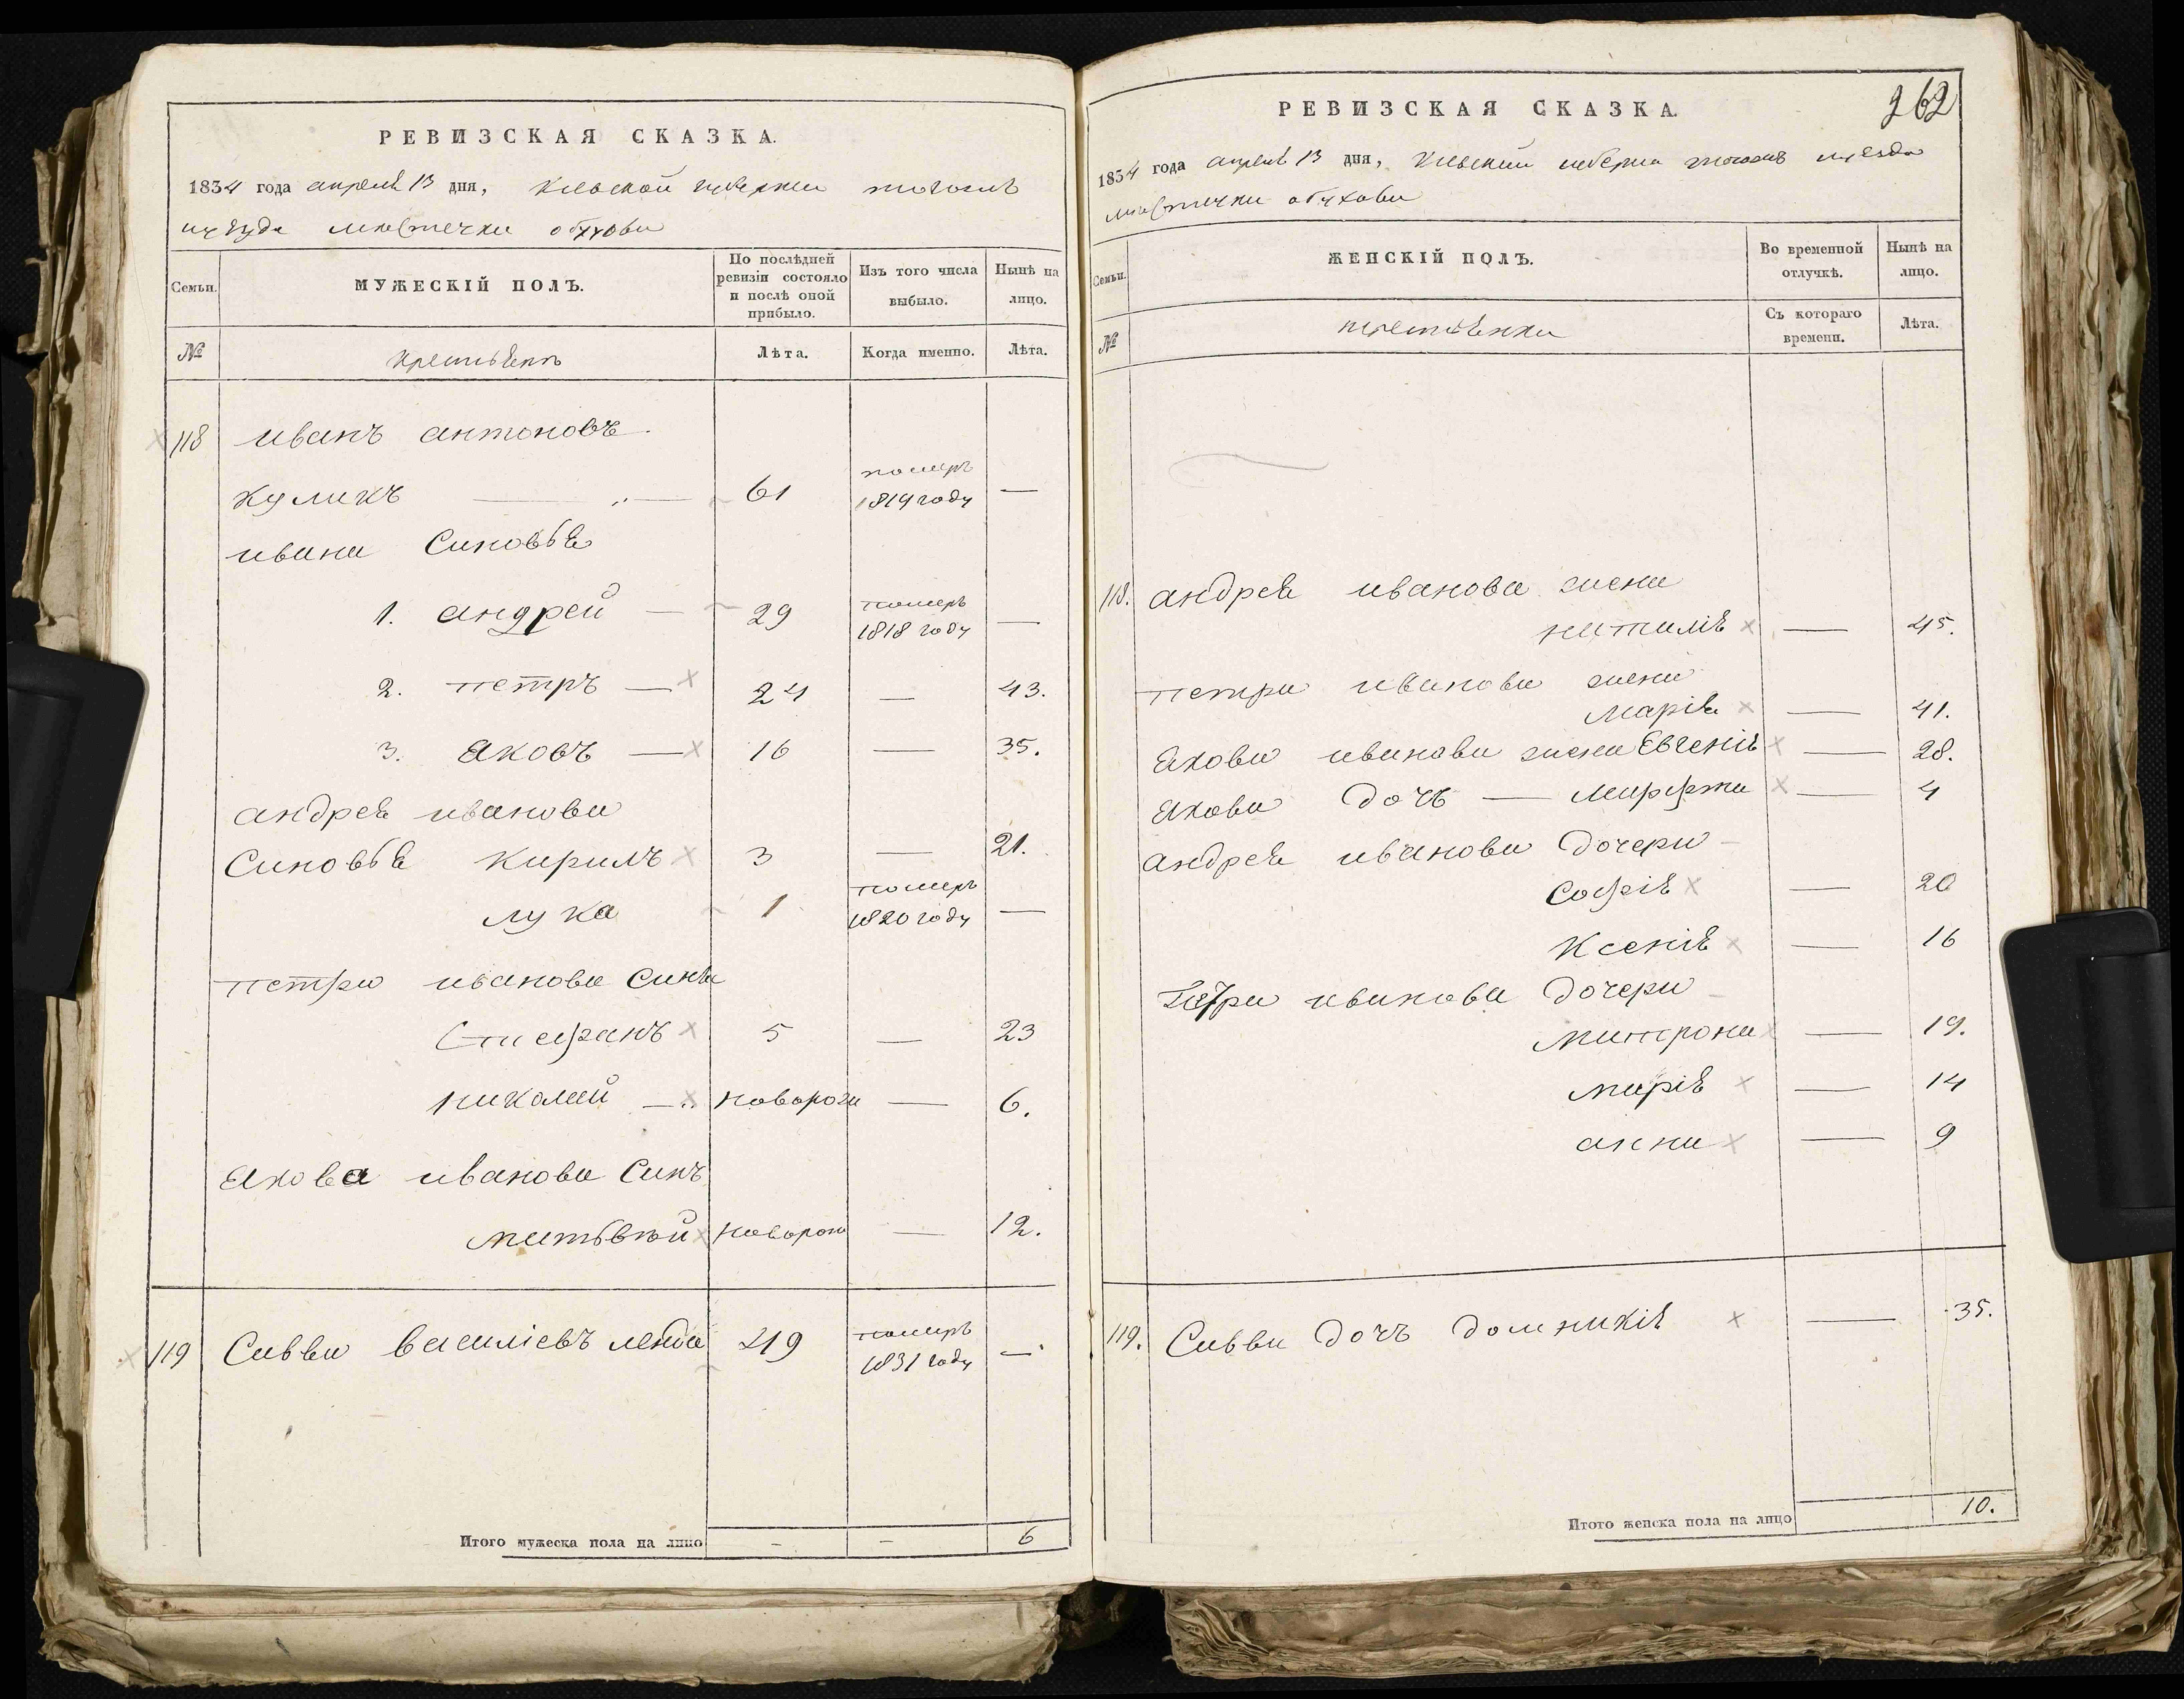 РЕВИЗСКАЯ СКАЗКА.
1834 года апреля 13 дня, Киевской губернии тогожъ
уезда местечка обухова
Семьи.
МУЖЕСКІЙ ПОЛЪ.
По послѣдней ревизіи состояло и послѣ оной прибыло.
Изъ того числа выбыло.
Нынѣ на лицо.
№
крестьянъ
Лѣта.
Когда именно.
Лѣта.
118 иванъ антоновъ
куликъ — 61 померъ 1819 году —
ивана Синовья
1. андрей — 29 померъ 1818 году —
2. петръ — 24 — 43.
3. яковъ — 16 — 35.
андрея иванова
Синовья кирилъ 3 — 21.
лука 1 померъ 1820 году —
петра иванова Сины
Стефанъ 5 — 23
николай — новорож — 6.
якова иванова Синъ
матьвѣй новорож — 12.
119 Савва василіевъ 49 померъ 1831 году —
Итого мужеска пола на лицо - - 6
262
РЕВИЗСКАЯ СКАЗКА.
1834 года апреля 13 дня, Киевской губернии тогожъ уезда
местечка обухова
Семьи.
ЖЕНСКІЙ ПОЛЪ.
Во временной отлучкѣ.
Нынѣ на лицо.
№
крестьянки
Съ котораго времени.
Лѣта.
118. андрея иванова жена
наталія — 45.
петра иванова жена
Марія — 41.
якова иванова жена Евгенія — 28.
якова дочъ — марфта — 4
андрея иванова дочери
Софія — 20
Ксенія — 16
Петра иванова дочери
матрона — 19.
марія — 14
анна — 9
119. Савви дочъ домникія — 35.
Итого женска пола на лицо 10.